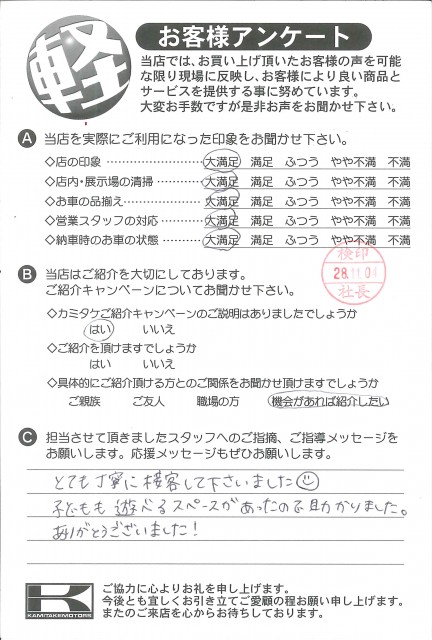 軽
お客様アンケート
当店では、お買い上げ頂いたお客様の声を可能
な限り現場に反映し、お客様により良い商品と
サービスを提供する事に努めています。
大変お手数ですが是非お声をお聞かせ下さい。
A 当店を実際にご利用になった印象をお聞かせ下さい。
◇店の印象 …………………… 大満足 満足 ふつう やや不満 不満
◇店内・展示場の清掃 ………… 大満足 満足 ふつう やや不満 不満
◇お車の品揃え ……………… 大満足 満足 ふつう やや不満 不満
◇営業スタッフの対応 ………… 大満足 満足 ふつう やや不満 不満
◇納車時のお車の状態 ……… 大満足 満足 ふつう やや不満 不満
検印
28.11.04
社長
B 当店はご紹介を大切にしております。
ご紹介キャンペーンについてお聞かせ下さい。
◇カミタケご紹介キャンペーンのご説明はありましたでしょうか
はい いいえ
◇ご紹介を頂けますでしょうか
はい いいえ
◇具体的にご紹介頂ける方とのご関係をお聞かせ頂けますでしょうか
ご親族 ご友人 職場の方 機会があれば紹介したい
C 担当させて頂きましたスタッフへのご指摘、ご指導メッセージを
お願いします。応援メッセージもぜひお願いします。
とても丁寧に接客して下さいました
子どもも遊べるスペースがあったので助かりました。
ありがとうございました!
K
KAMITAKEMOTORS
ご協力に心よりお礼を申し上げます。
今後とも宜しくお引き立てご愛顧の程お願い申し上げます。
またのご来店を心からお待ちしております。